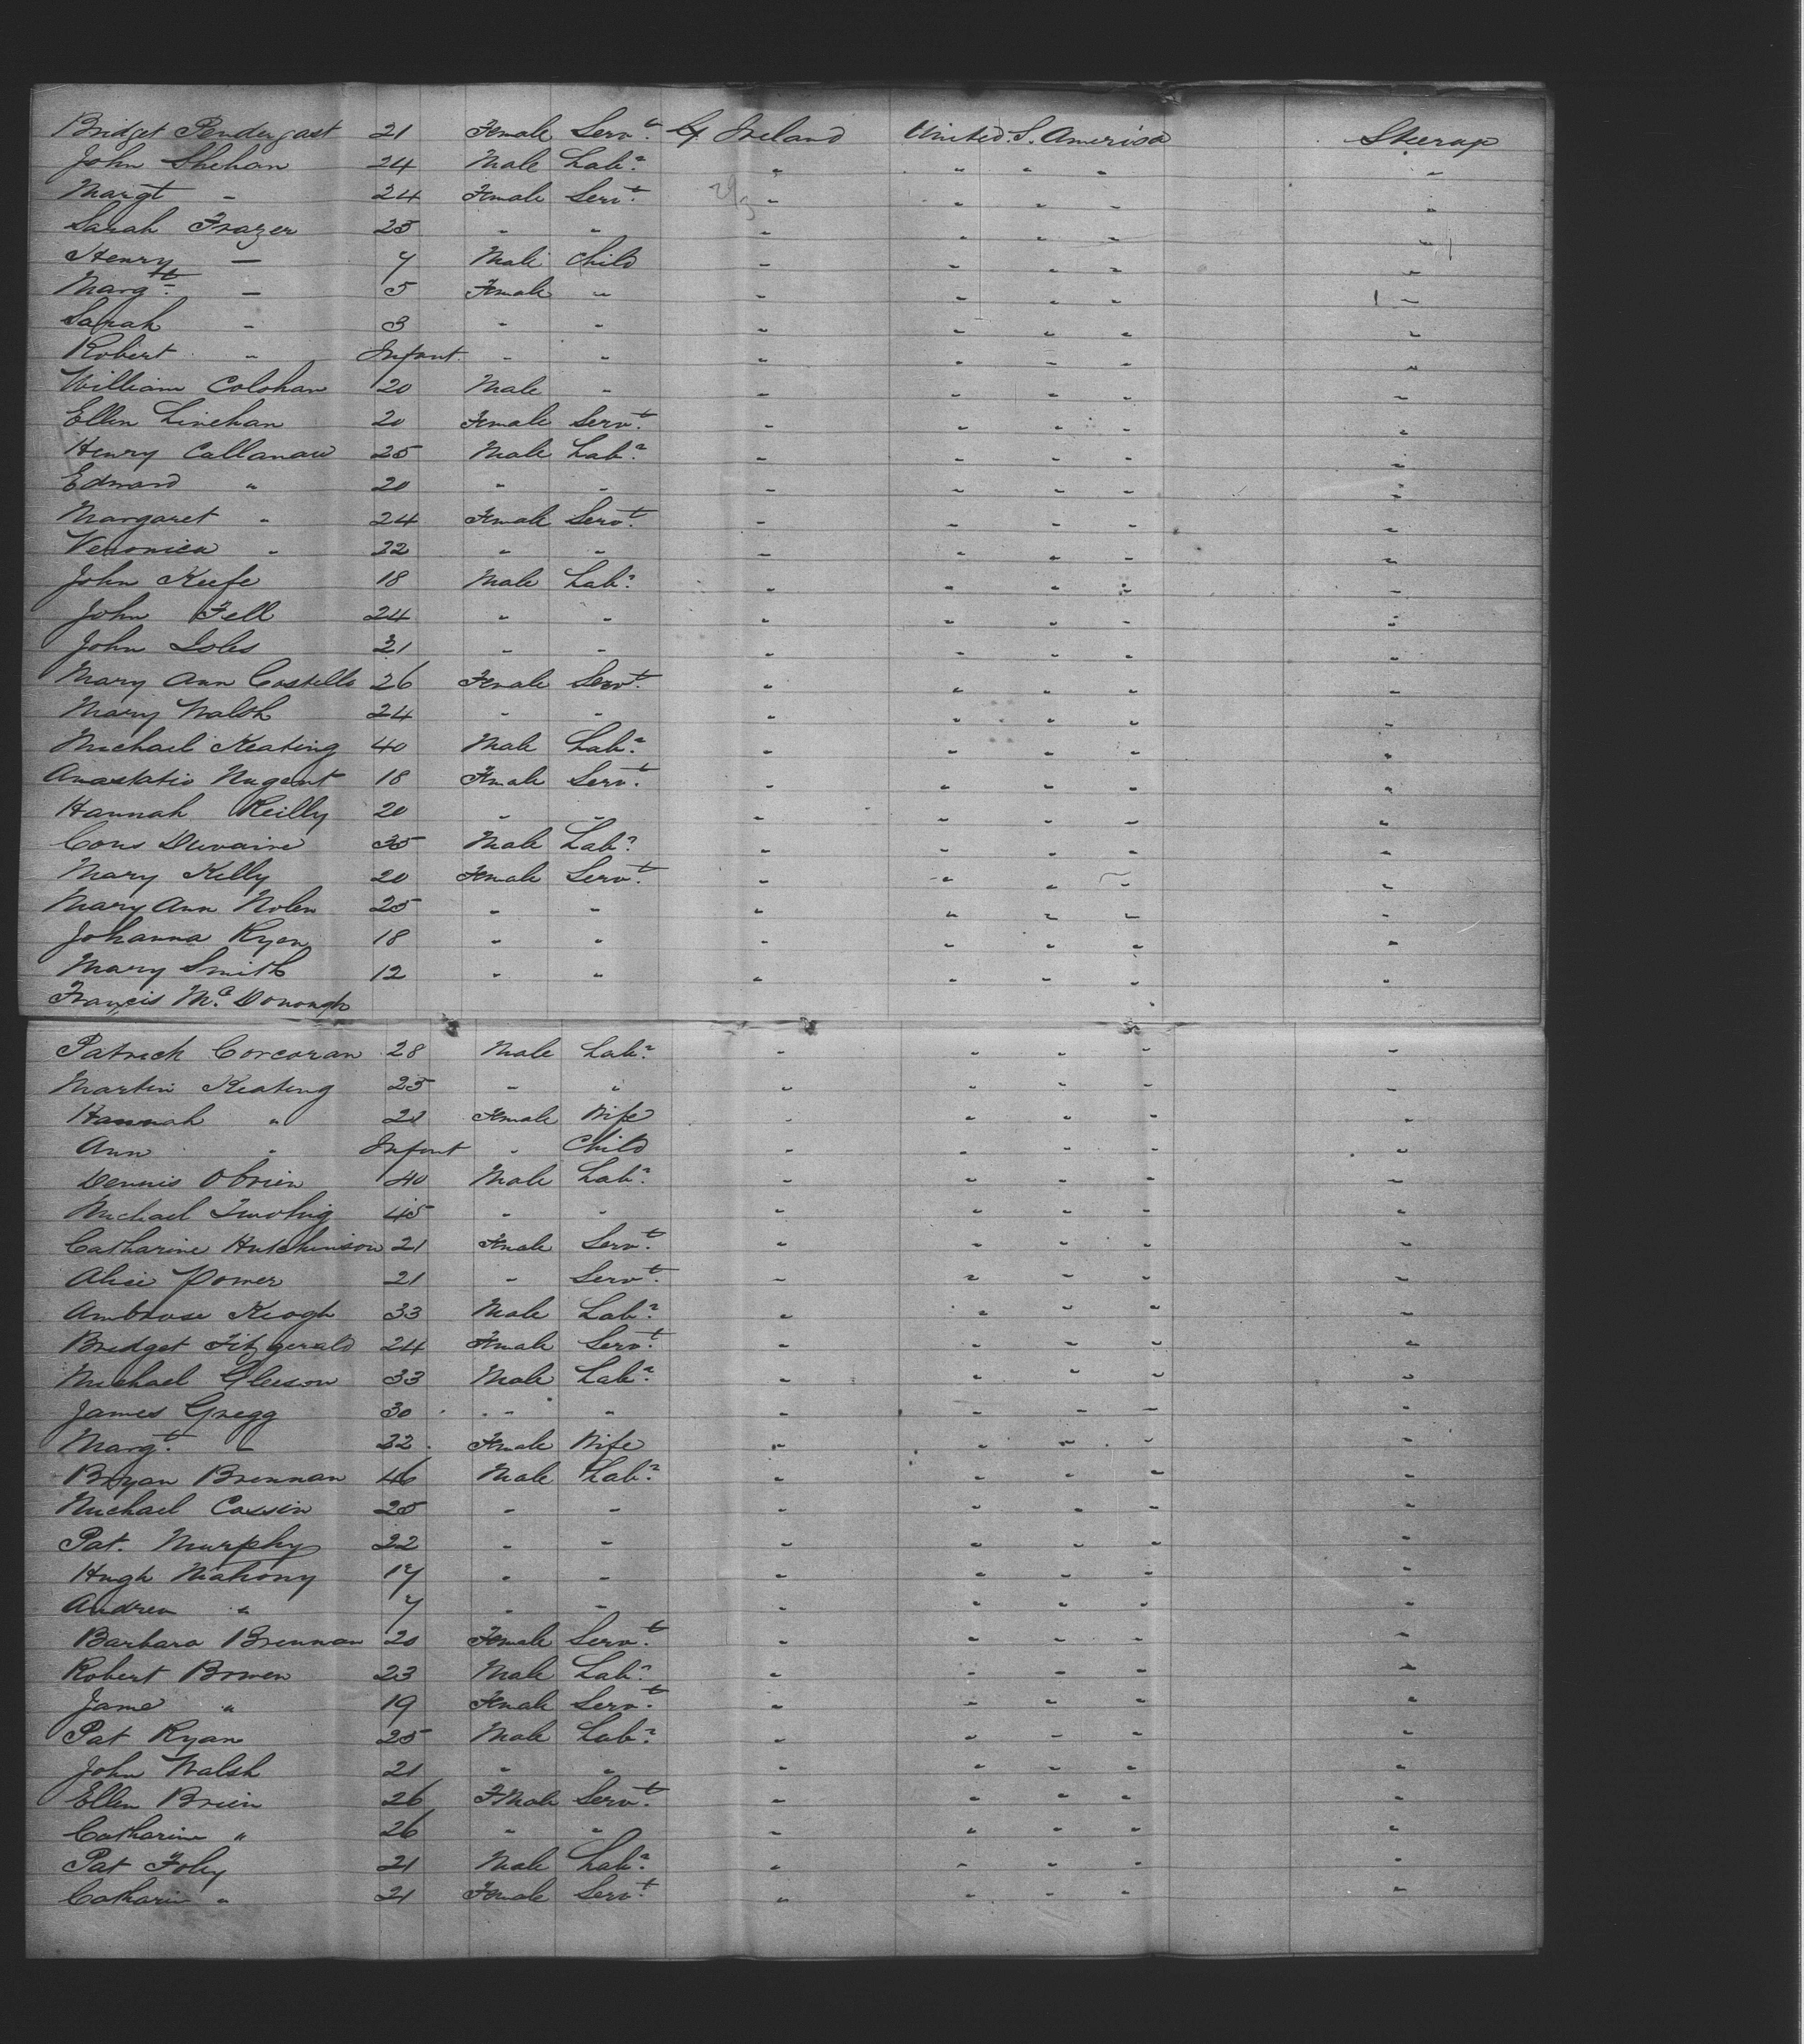 Bridget Pendergast 21 Female Servt. Ireland United. S. America Steerage
John Shehan 24 Male Labr. " " " " "
Margt " 24 Female Servt. " " " " "
Sarah Frazer 25 " " " " " " "
Henry — 7 Male Child " " " " "
Margt. — 5 Female " " " " " "
Sarah " 3 " " " " " " "
Robert " Infant " " " " " " "
William Colohan 20 Male " " " " " "
Ellen Linehan 20 Female Servt. " " " " "
Henry Callanan 25 Male Labr. " " " " "
Edward " 20 " " " " " " "
Margaret " 24 Female Servt. " " " " "
Veronica " 22 " " " " " " "
John Keefe 18 Male Labr. " " " " "
John Fell 24 " " " " " " "
John 21 " " " " " " "
Mary Ann Costello 26 Female Servt. " " " " "
Mary Walsh 24 " " " " " " "
Michael Keating 40 Male Labr. " " " " "
Anastatio Nugent 18 Female Servt. " " " " "
Hannah Reilly 20 " " " " " " "
Cons 35 Male Labr. " " " " "
Mary Kelly 20 Female Servt. " " " " "
Mary Ann Nolen 25 " " " " " " "
Johanna Ryan 18 " " " " " " "
Mary Smith 12 " " " " " " "
Francis Mc. Donough
Patrick Corcoran 28 Male Labr. " " " " "
Martin Keating 25 " " " " " " "
Hannah " 21 Female Wife " " " " "
Ann " Infant " Child " " " " "
Dennis Obrien 40 Male Labr. " " " " "
Michael Twohig 45 " " " " " " "
Catharine Hutchinson 21 Female Servt. " " " " "
Alice Power 21 " Servt. " " " " "
Ambrose Keogh 33 Male Labr. " " " " "
Bridget Fitzgerald 24 Female Servt. " " " " "
Michael Gleeson 33 Male Labr. " " " " "
James Gregg 30 " " " " " " "
Margt. — 32 Female Wife " " " " "
Bryan Brennan 46 Male Labr. " " " " "
Michael Cassin 25 " " " " " " "
Pat. Murphy 22 " " " " " " "
Hugh Mahony 17 " " " " " " "
Andrew " 7 " " " " " " "
Barbara Brennan 20 Female Servt. " " " " "
Robert Bowen 23 Male Labr. " " " " "
Jane " 19 Female Servt. " " " " "
Pat Ryan 25 Male Labr. " " " " "
John Walsh 21 " " " " " " "
Ellen Brien 26 Female Servt. " " " " "
Catharine " 26 " " " " " " "
Pat Foley 21 Male Labr. " " " " "
Catharin " 21 Female Servt. " " " " "